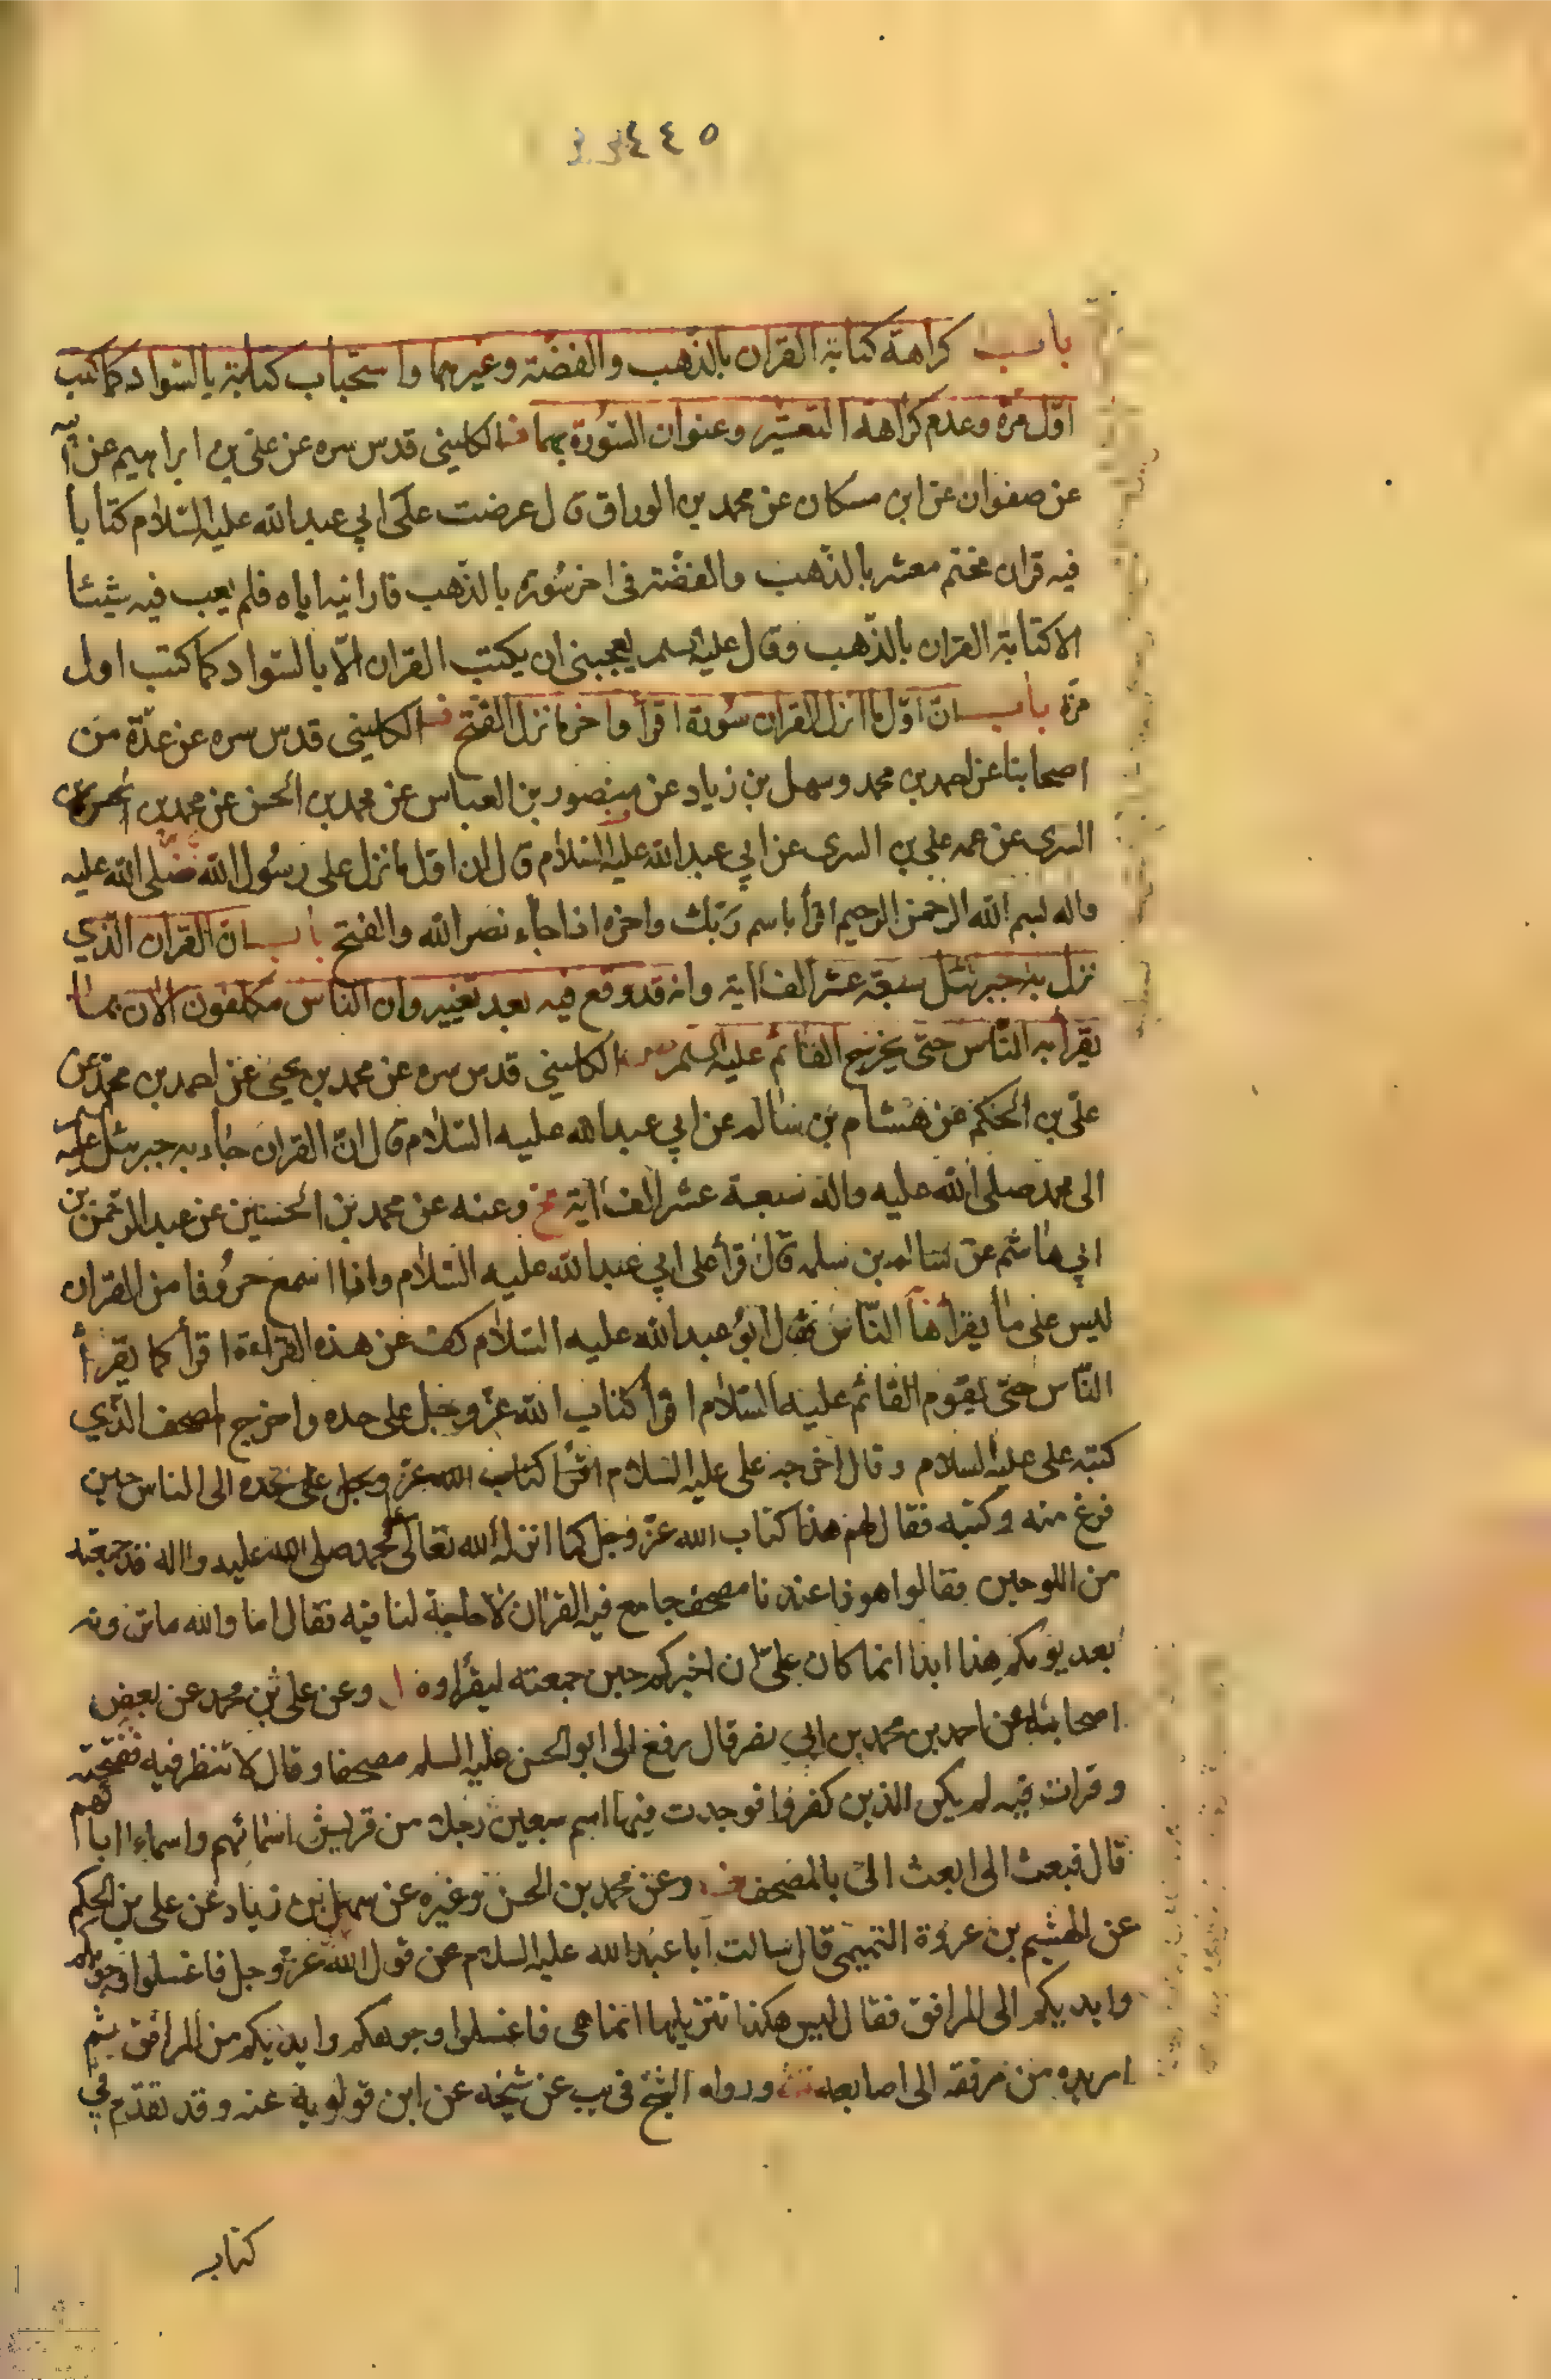 ٤٤٥
باب كراهة كتابة القران بالذهب والفضة وغيرهما واستحباب كتابته بالسواد كما كتب
اول مرة وعدم كراهة التعشير وعنوان السورة بهما الكليني قدس سره عن علي بن ابراهيم عن
عن صفوان عن ابن مسكان عن محمد بن الوراق قال عرضت على ابي عبد الله عليه السلام كتابا
فيه قران مختم معشر بالذهب والفضة في اخر سورة بالذهب فارانيه اياه فلم يعب فيه شيئا
الا كتابة القران بالذهب وقال عليه السلم يعجبني ان يكتب القران الا بالسواد كما كتب اول
مرة باب ان اول ما انزل القران سورة اقرأ واخر ما نزل الفتح الكليني قدس سره عن عدة من
اصحابنا عن احمد بن محمد وسهل بن زياد عن منصور بن العباس عن محمد بن الحسن عن محمد بن
السرى عن عمه علي بن السرى عن ابي عبد الله عليه السلام قال ان اول ما نزل على رسول الله صلى الله عليه
واله بسم الله الرحمن الرحيم اقرأ باسم ربك واخره اذا جاء نصر الله والفتح باب ان القران الذي
نزل به جبرئيل سبعة عشر الف اية وانه قد وقع فيه بعد تغيير وان الناس مكلفون الان بما
يقرأ به الناس حتى يخرج القائم عليه السلم الكليني قدس سره عن محمد بن يحيى عن احمد بن محمد عن
علي بن الحكم عن هشام بن سالم عن ابي عبد الله عليه السلام قال ان القران جاء به جبرئيل عليه
الى محمد صلى الله عليه واله سبعة عشر الف اية وعنه عن محمد بن الحسين عن عبد الرحمن بن
ابي هاشم عن سالم بن سلمه قال قرأ على ابي عبد الله عليه السلام وانا اسمع حروفا من القران
ليس على ما يقرأها الناس فقال ابو عبد الله عليه السلام كف عن هذه القراءة اقرأ كما يقرأ
الناس حتى يقوم القائم عليه السلام اقرأ كتاب الله عز وجل على حده واخرج المصحف الذي
كتبه علي عليه السلام وقال اخرجه علي عليه السلام اقرأ كتاب الله عز وجل على حده الى الناس حين
فرغ منه وكتبه فقال لهم هذا كتاب الله عز وجل كما انزله الله تعالى محمد صلى الله عليه واله قد جمعته
من اللوحين فقالوا هو ذا عندنا مصحف جامع فيه القران لا حاجة لنا فيه فقال اما والله ما ترونه
بعد يومكم هذا ابدا انما كان علي ان اخبركم حين جمعته ليقرأوه وعن علي بن محمد عن بعض
اصحابه عن احمد بن محمد بن ابي نصر قال رفع الى ابو الحسن عليه السلم مصحفا وقال لا تنظر فيه ففتحته
وقرات فيه لم يكن الذين كفروا فوجدت فيها اسم سبعين رجلا من قريش اسمائهم واسماء ابائهم
قال فبعث الى ابعث الى بالمصحف وعن محمد بن الحسن وغيره عن سهل بن زياد عن علي بن الحكم
عن الهشيم بن عروة التميمي قال سالت ابا عبد الله عليه السلام عن قول الله عز وجل فاغسلوا وجوهكم
وايديكم الى المرافق فقال ليس هكذا تنزيلها انما هى فاغسلوا وجوهكم وايديكم من المرافق ثم
امر يده من مرفقه الى اصابعه ورواه الشيخ في يب عن شيخه عن ابن قولويه عنه وقد تقدم في
كتاب